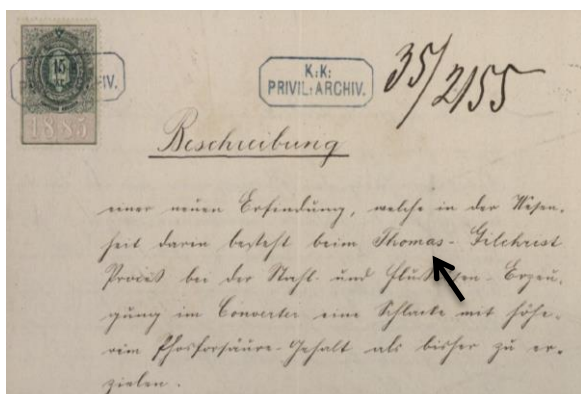 15
K.K:
PRIVIL: ARCHIV.
35/2155
1885
Beschreibung
einer neuen Erfindung, welche in der Wesen-
heit darin besteht beim Thomas-Gilchrist
Proceß bei der Stahl- und Flußeisen-Erzeu-
gung im Converter eine Schlacke mit höhe-
rem Phosforsäure-Gehalt als bisher zu er-
zielen.